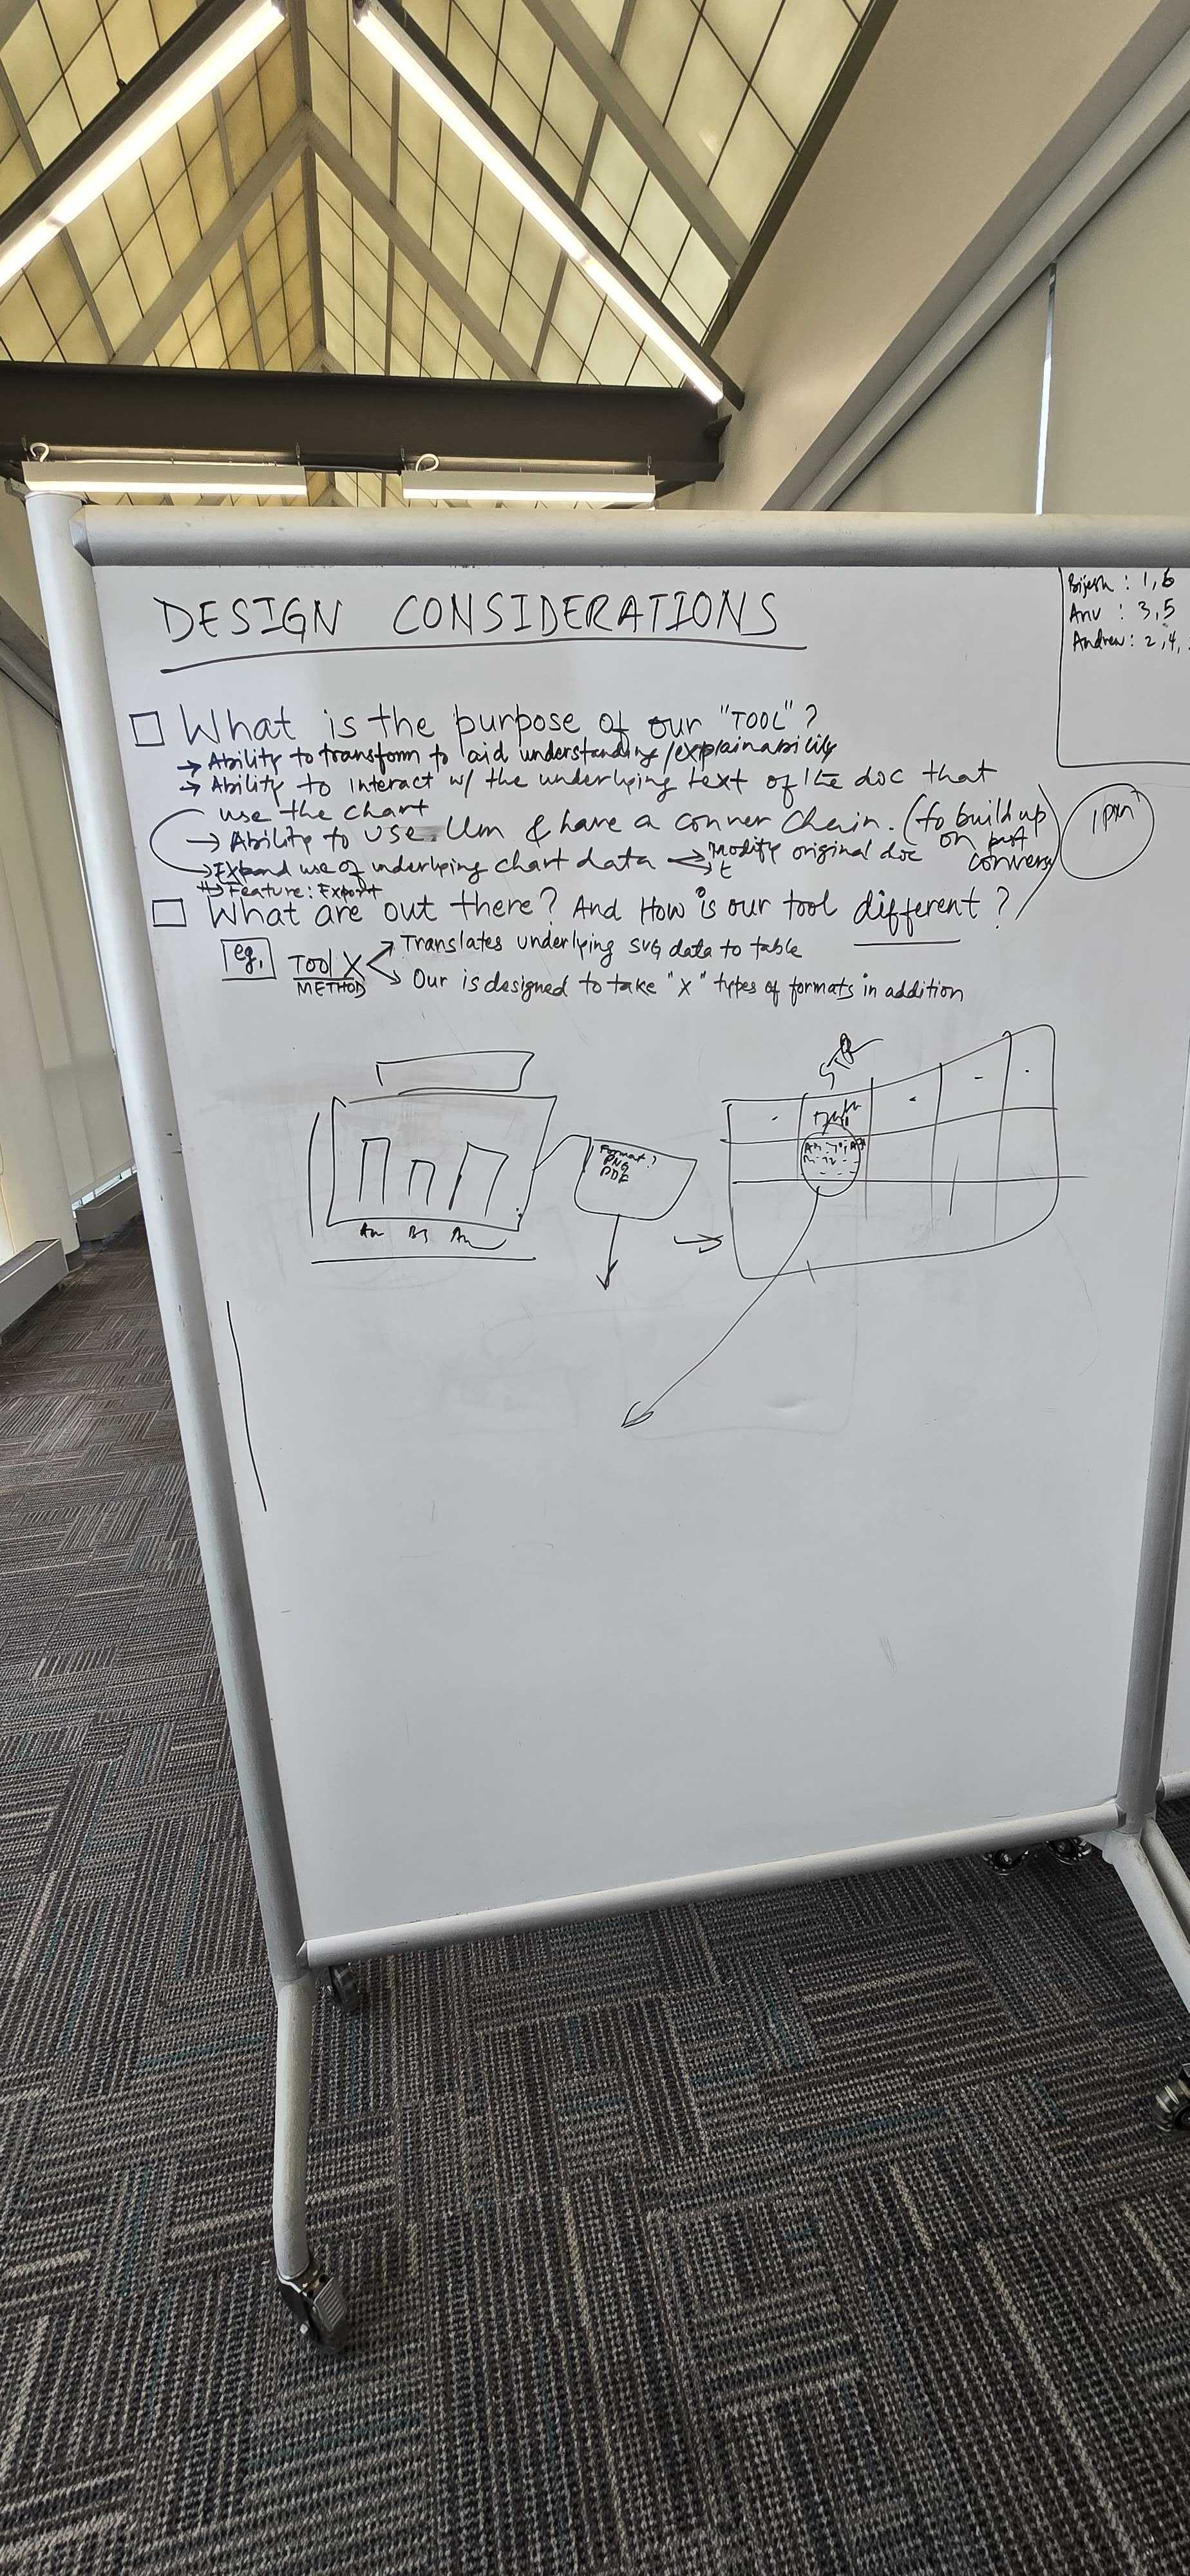 DESIGN CONSIDERATIONS
Bijesh : 1, 6
Anv : 3, 5
Andrew : 2, 4,
What is the purpose of our "TOOL" ?
→ Ability to transform to aid understanding/explainability
→ Ability to interact w/ the underlying text of the doc that
use the chart
→ Ability to use Llm & have a conver chain. (to build up
on past
convers)
→ Expand use of underlying chart data
Modify original doc
t
→ Feature: Export
1pm
What are out there? And How is our tool different ?
eg,
TOOL X
METHOD
Translates underlying SVG data to table
Our is designed to take "X" types of formats in addition
Format?
PNG
PDF